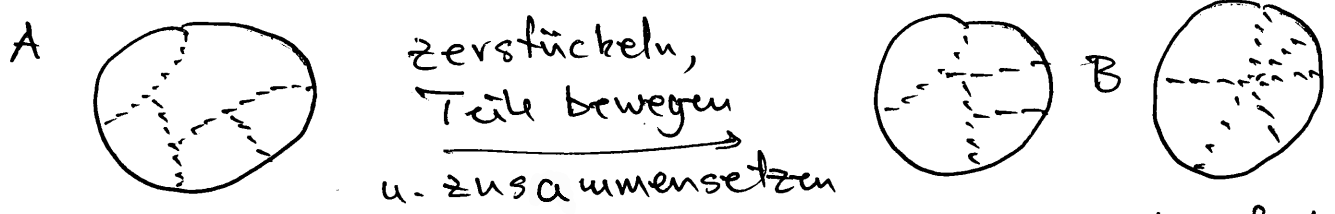 A
zerstückeln,
Teile bewegen
u. zusammensetzen
B